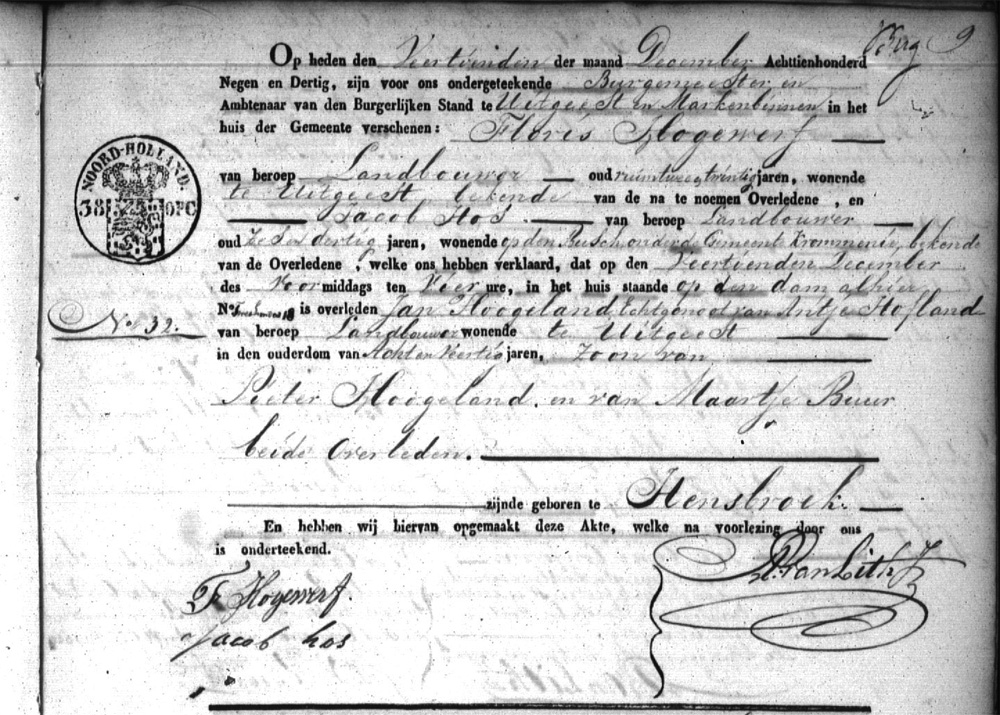 9
Op heden den Veertienden der maand December Achttienhonderd
Negen en Dertig, zijn voor ons ondergeteekende Burgemeester en
Ambtenaar van den Burgerlijken Stand te Uitgeest en Markenbinnen in het
huis der Gemeente verschenen: Floris Hogewerf
van beroep Landbouwer oud ruim twee en twintig jaren, wonende
te Uitgeest bekende van de na te noemen Overledene, en
Jacob Kos van beroep Landbouwer
oud Zes en dertig jaren, wonende op den Busch onder de Gemeente Krommenie, bekende
van de Overledene, welke ons hebben verklaard, dat op den Veertienden December
des Voormiddags ten Vier ure, in het huis staande op den dam alhier
No. is overleden Jan Hoogeland Echtgenoot van Antje Hofland
van beroep Landbouwer wonende te Uitgeest
in den ouderdom van Acht en Veertig jaren, Zoon van
Pieter Hoogeland en van Maartje Buur
beide Overleden.
zijnde geboren te Hensbroek.
En hebben wij hiervan opgemaakt deze Akte, welke na voorlezing door ons
is onderteekend.
NOORD-HOLLAND.
38 OPC
No 32.
F Hogewerf.
Jacob kos